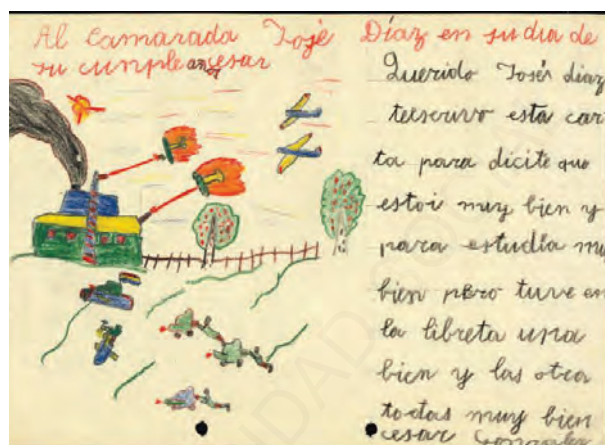 Al Camarada José Díaz en su dia de
su cumpleansesar
Querido José diaz
teescrivo esta car
ta para dicite que
estoi muy bien y
para estudia mu
bien pero tuve en
la libreta una
bien y las otra
todas muy bien
cesar Gonzalez